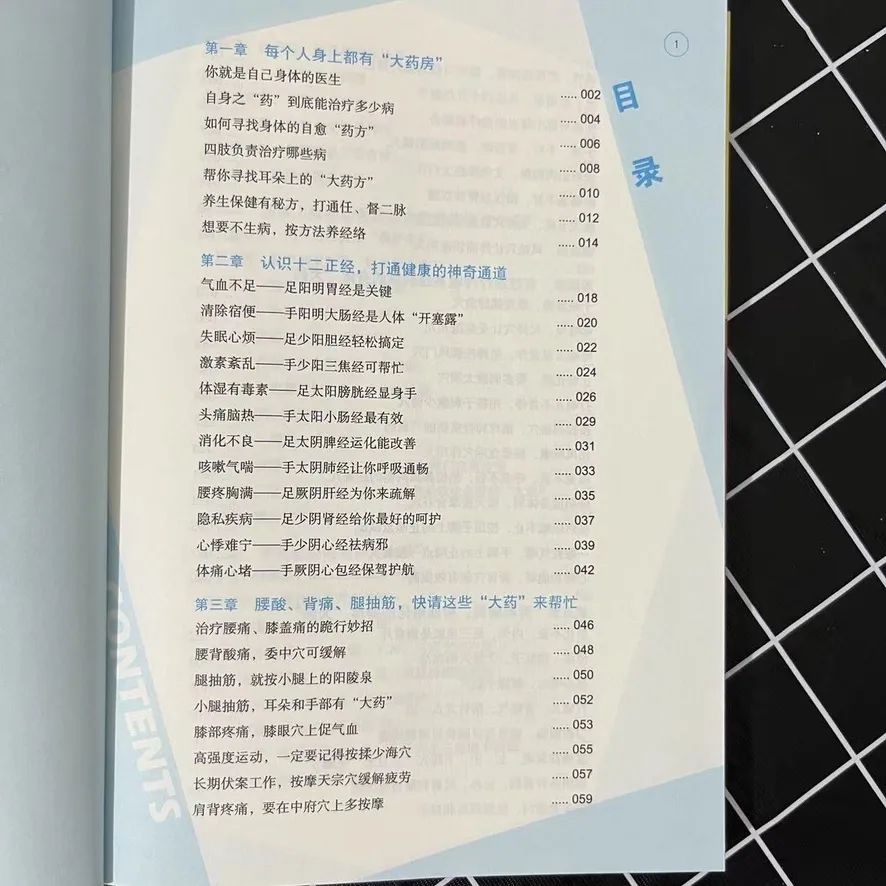 1
目录
第一章 每个人身上都有“大药房”
你就是自己身体的医生 ..... 002
自身之“药”到底能治疗多少病 ..... 004
如何寻找身体的自愈“药方” ..... 006
四肢负责治疗哪些病 ..... 008
帮你寻找耳朵上的“大药方” ..... 010
养生保健有秘方，打通任、督二脉 ..... 012
想要不生病，按方法养经络 ..... 014
第二章 认识十二正经，打通健康的神奇通道
气血不足——足阳明胃经是关键 ..... 018
清除宿便——手阳明大肠经是人体“开塞露” ..... 020
失眠心烦——足少阳胆经轻松搞定 ..... 022
激素紊乱——手少阳三焦经可帮忙 ..... 024
体湿有毒素——足太阳膀胱经显身手 ..... 026
头痛脑热——手太阳小肠经最有效 ..... 029
消化不良——足太阴脾经运化能改善 ..... 031
咳嗽气喘——手太阴肺经让你呼吸通畅 ..... 033
腰疼胸满——足厥阴肝经为你来疏解 ..... 035
隐私疾病——足少阴肾经给你最好的呵护 ..... 037
心悸难宁——手少阴心经祛病邪 ..... 039
体痛心堵——手厥阴心包经保驾护航 ..... 042
第三章 腰酸、背痛、腿抽筋，快请这些“大药”来帮忙
治疗腰痛、膝盖痛的跪行妙招 ..... 046
腰背酸痛，委中穴可缓解 ..... 048
腿抽筋，就按小腿上的阳陵泉 ..... 050
小腿抽筋，耳朵和手部有“大药” ..... 052
膝部疼痛，膝眼穴上促气血 ..... 053
高强度运动，一定要记得按揉少海穴 ..... 055
长期伏案工作，按摩天宗穴缓解疲劳 ..... 057
肩背疼痛，要在中府穴上多按摩 ..... 059
CONTENTS